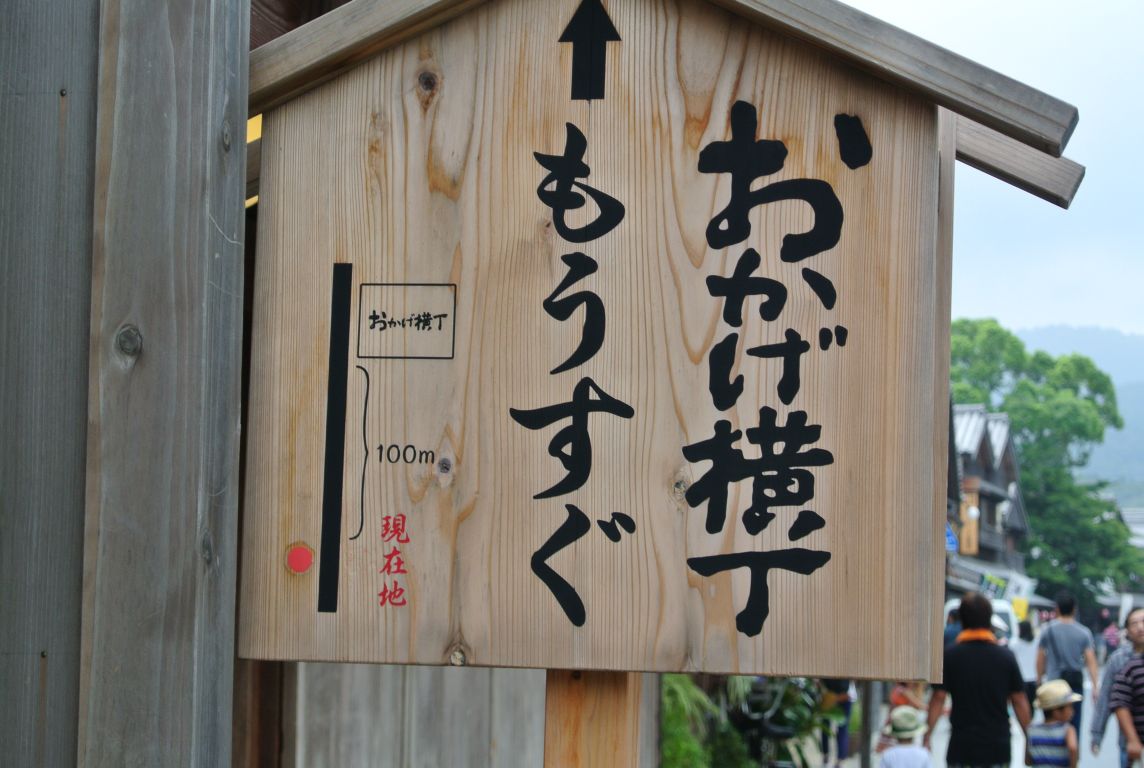 おかげ横丁
もうすぐ
おかげ横丁
100m
現在地